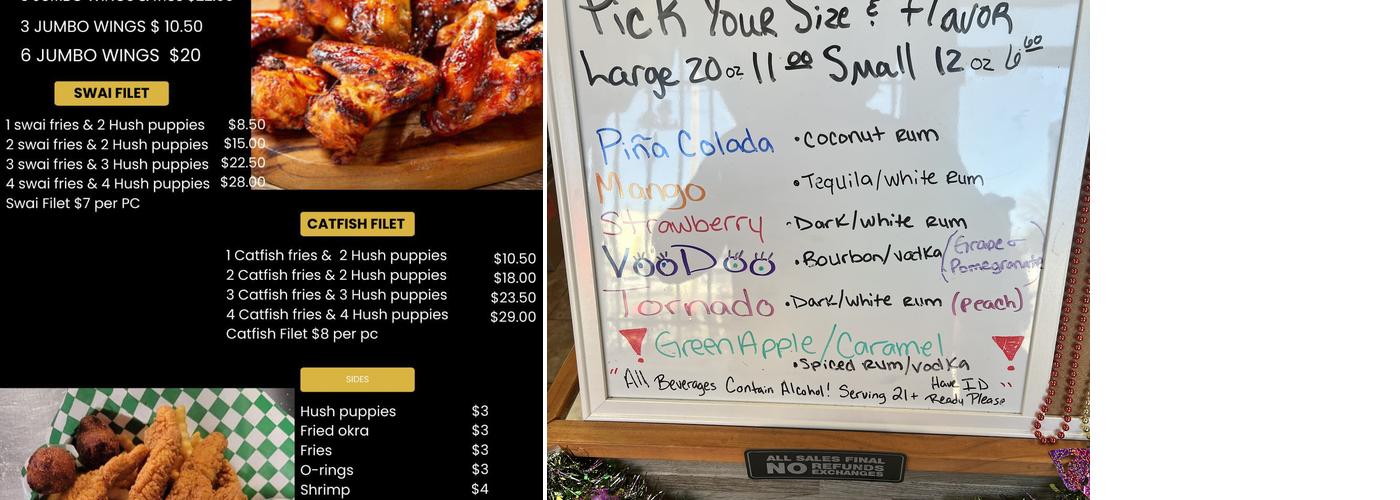 3 JUMBO WINGS $ 10.50
6 JUMBO WINGS $20
SWAI FILET
1 swai fries & 2 Hush puppies $8.50
2 swai fries & 2 Hush puppies $15.00
3 swai fries & 3 Hush puppies $22.50
4 swai fries & 4 Hush puppies $28.00
Swai Filet $7 per PC
CATFISH FILET
1 Catfish fries & 2 Hush puppies $10.50
2 Catfish fries & 2 Hush puppies $18.00
3 Catfish fries & 3 Hush puppies $23.50
4 Catfish fries & 4 Hush puppies $29.00
Catfish Filet $8 per pc
SIDES
Hush puppies $3
Fried okra $3
Fries $3
O-rings $3
Shrimp $4
Pick Your Size & Flavor
Large 20oz 11.00 Small 12 oz 6.60
Piña Colada • Coconut Rum
Mango • Tequila/White Rum
Strawberry - Dark/White Rum
VooDoo • Bourbon/vodka (Grape - Pomegranate)
Tornado • Dark/White Rum (Peach)
Green Apple/Caramel
• Spiced Rum/vodka
"All Beverages Contain Alcohol! Serving 21+ Have ID Ready Please"
ALL SALES FINAL
NO REFUNDS EXCHANGES